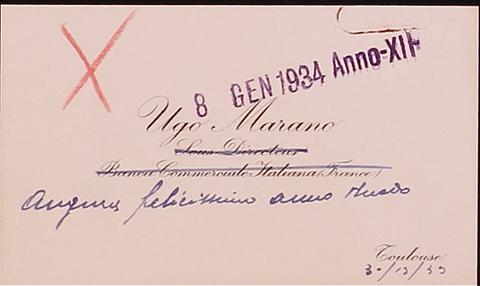 8 GEN 1934 Anno-XII
Ugo Marano
Sous Directeur
Banca Commerciale Italiana (France)
Augura felicissimo anno nuovo
Toulouse